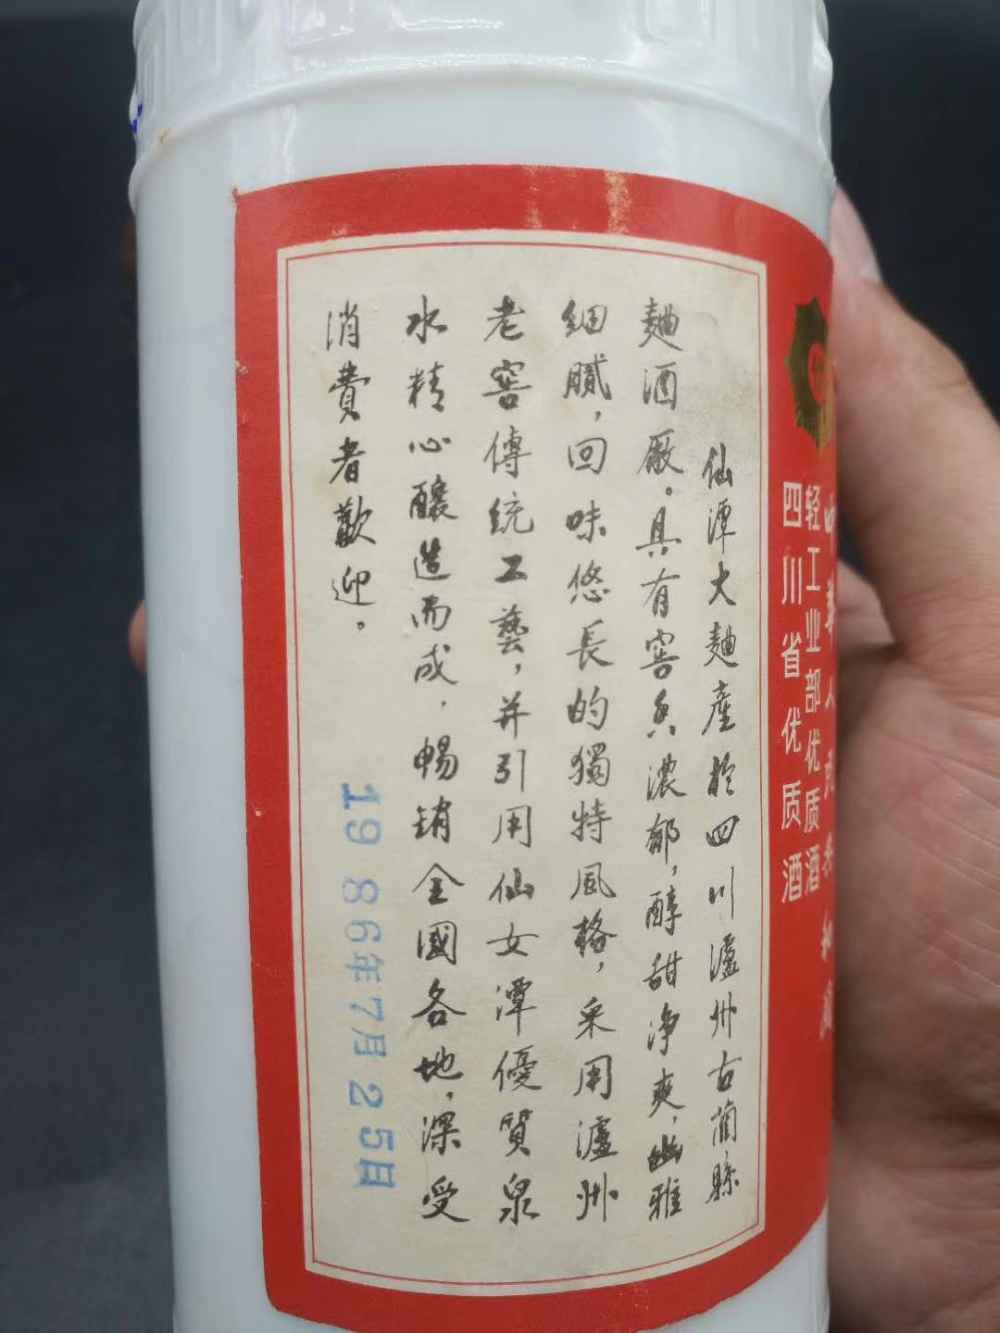 轻工业部优质酒
四川省优质酒
仙潭大麯產於四川瀘州古藺縣
麯酒廠。具有窖香濃郁，醇甜净爽，幽雅
細膩，回味悠長的獨特風格，采用瀘州
老窖傳統工藝，并引用仙女潭優質泉
水精心釀造而成，暢銷全國各地，深受
消費者歡迎。
1986年7月25日